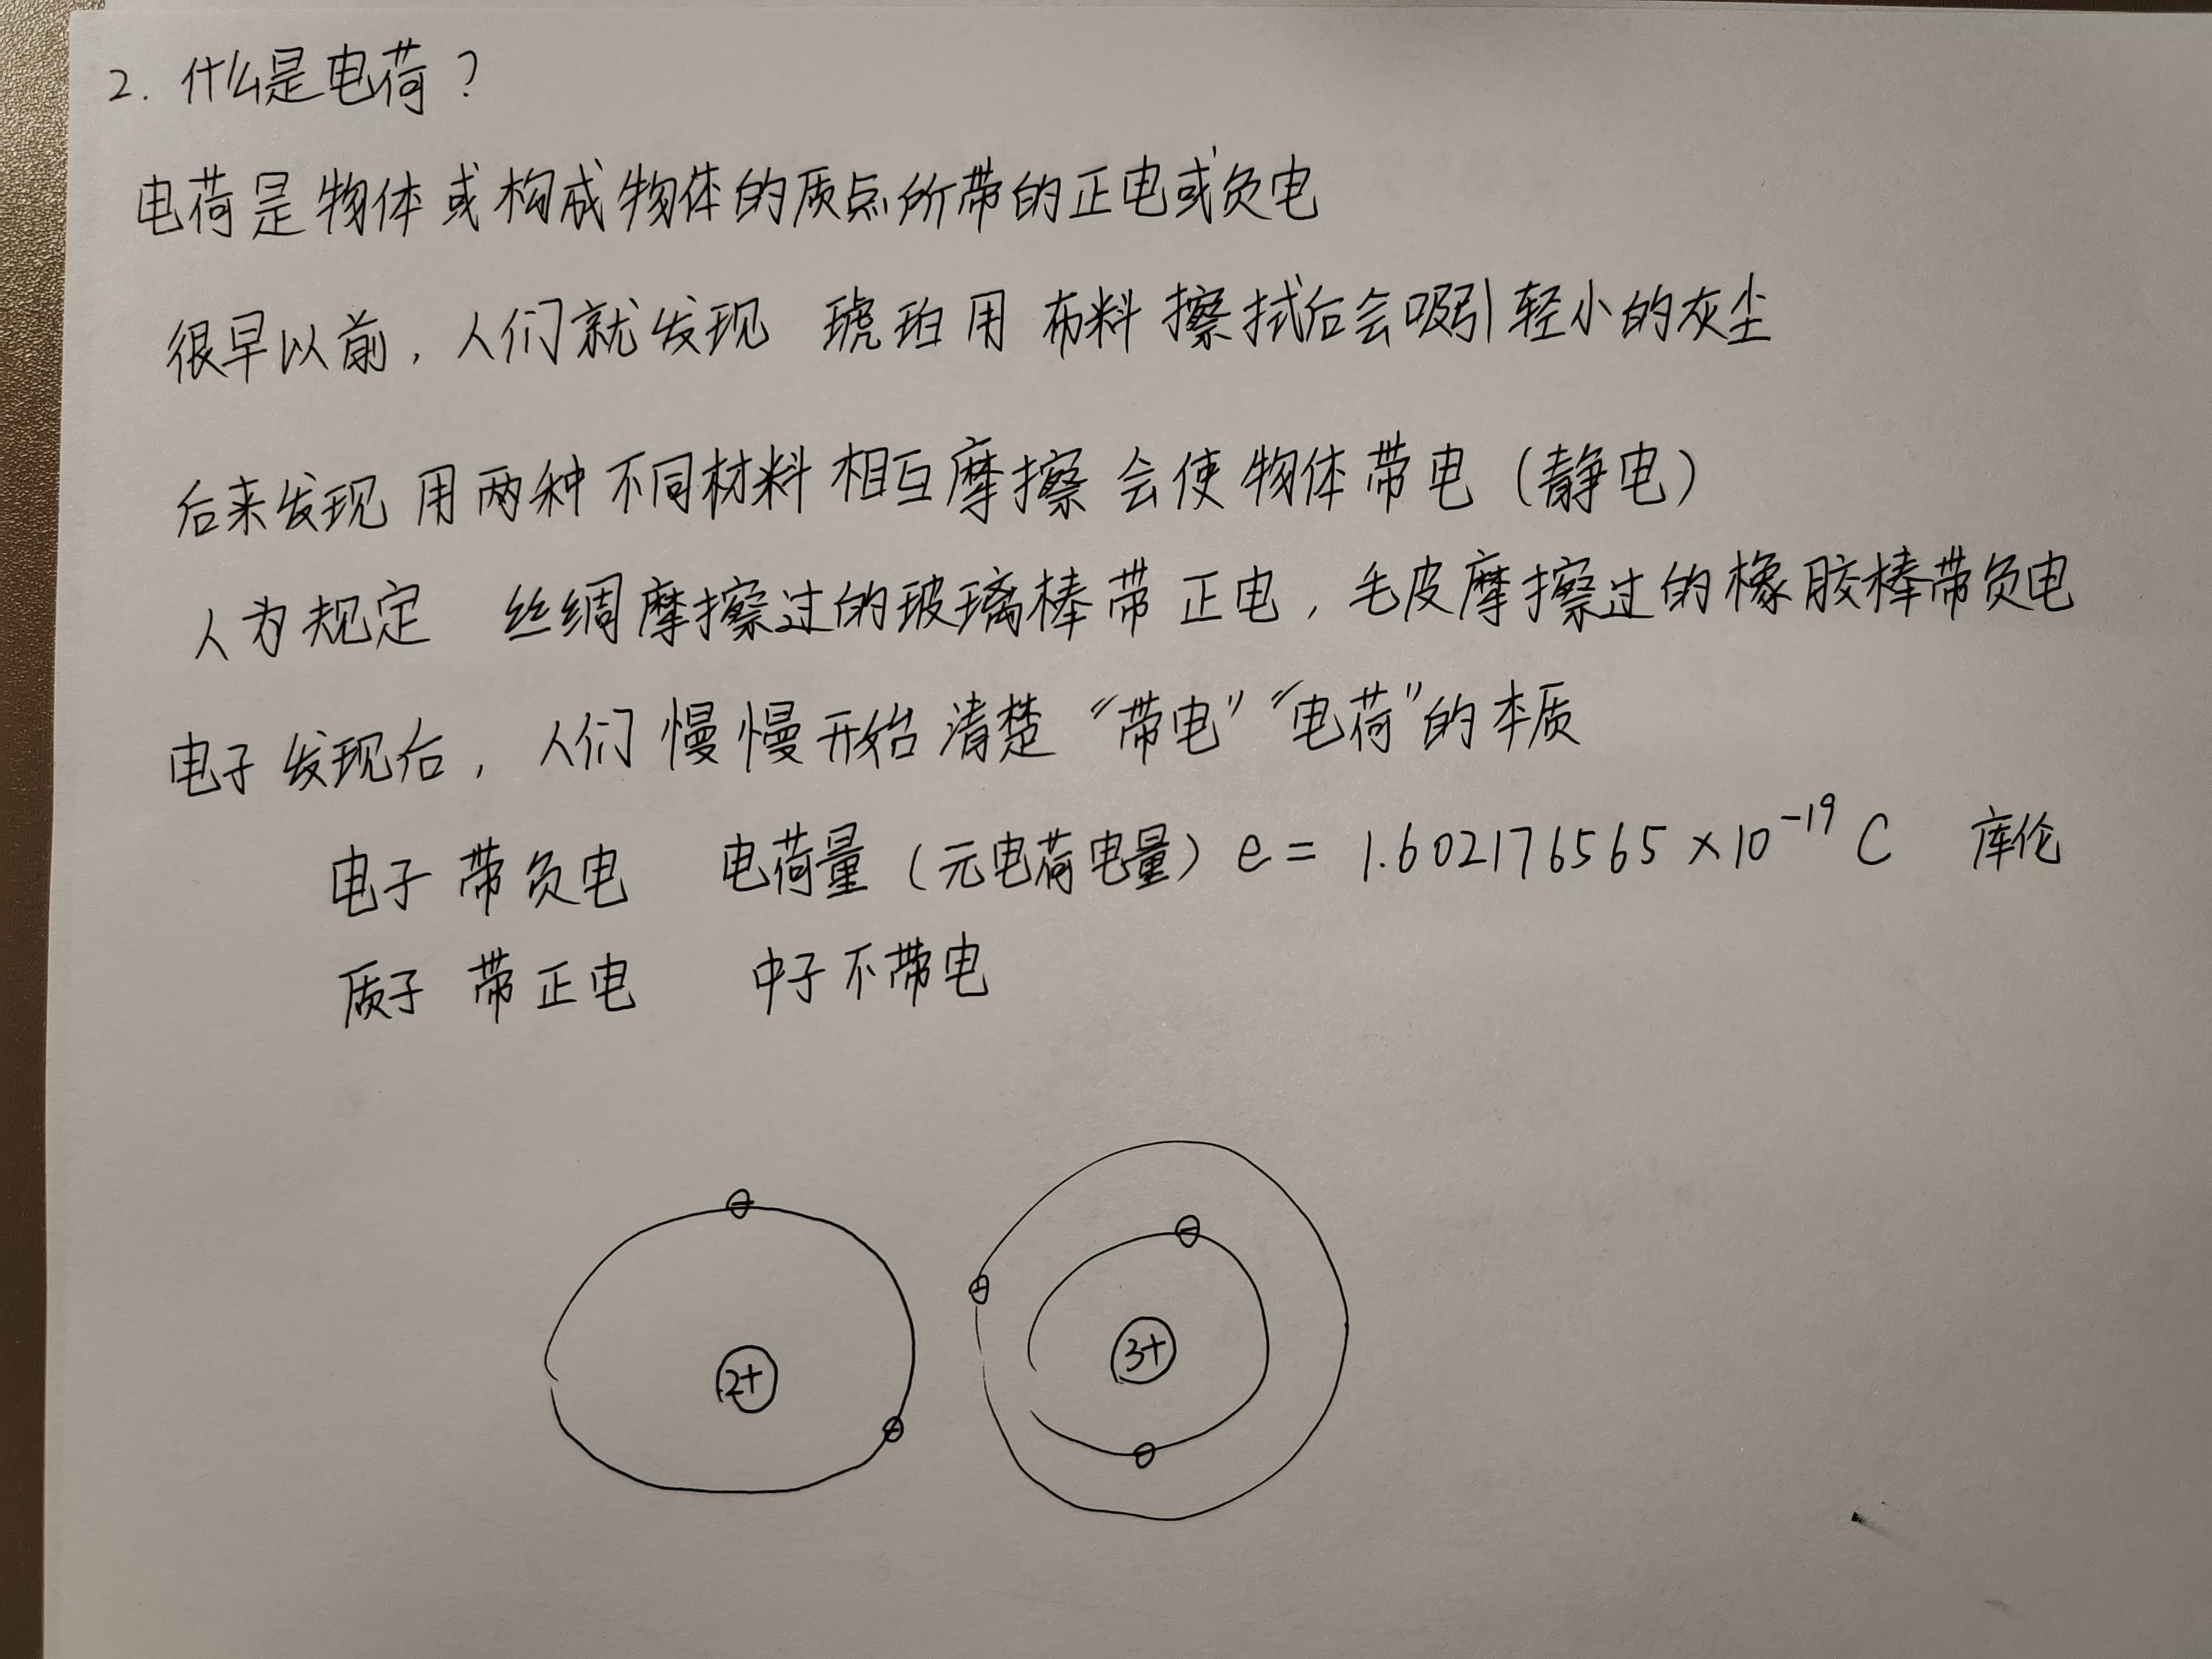 2. 什么是电荷?
电荷是物体或构成物体的质点所带的正电或负电
很早以前,人们就发现 琥珀用 布料 擦拭后会吸引轻小的灰尘
后来发现 用两种不同材料 相互摩擦 会使物体带电(静电)
人为规定 丝绸摩擦过的玻璃棒带正电,毛皮摩擦过的橡胶棒带负电
电子发现后,人们慢慢开始清楚 “带电”“电荷”的本质
电子带负电 电荷量(元电荷电量)e = 1.602176565 × 10⁻¹⁹ C 库伦
质子 带正电 中子不带电
2+ 3+